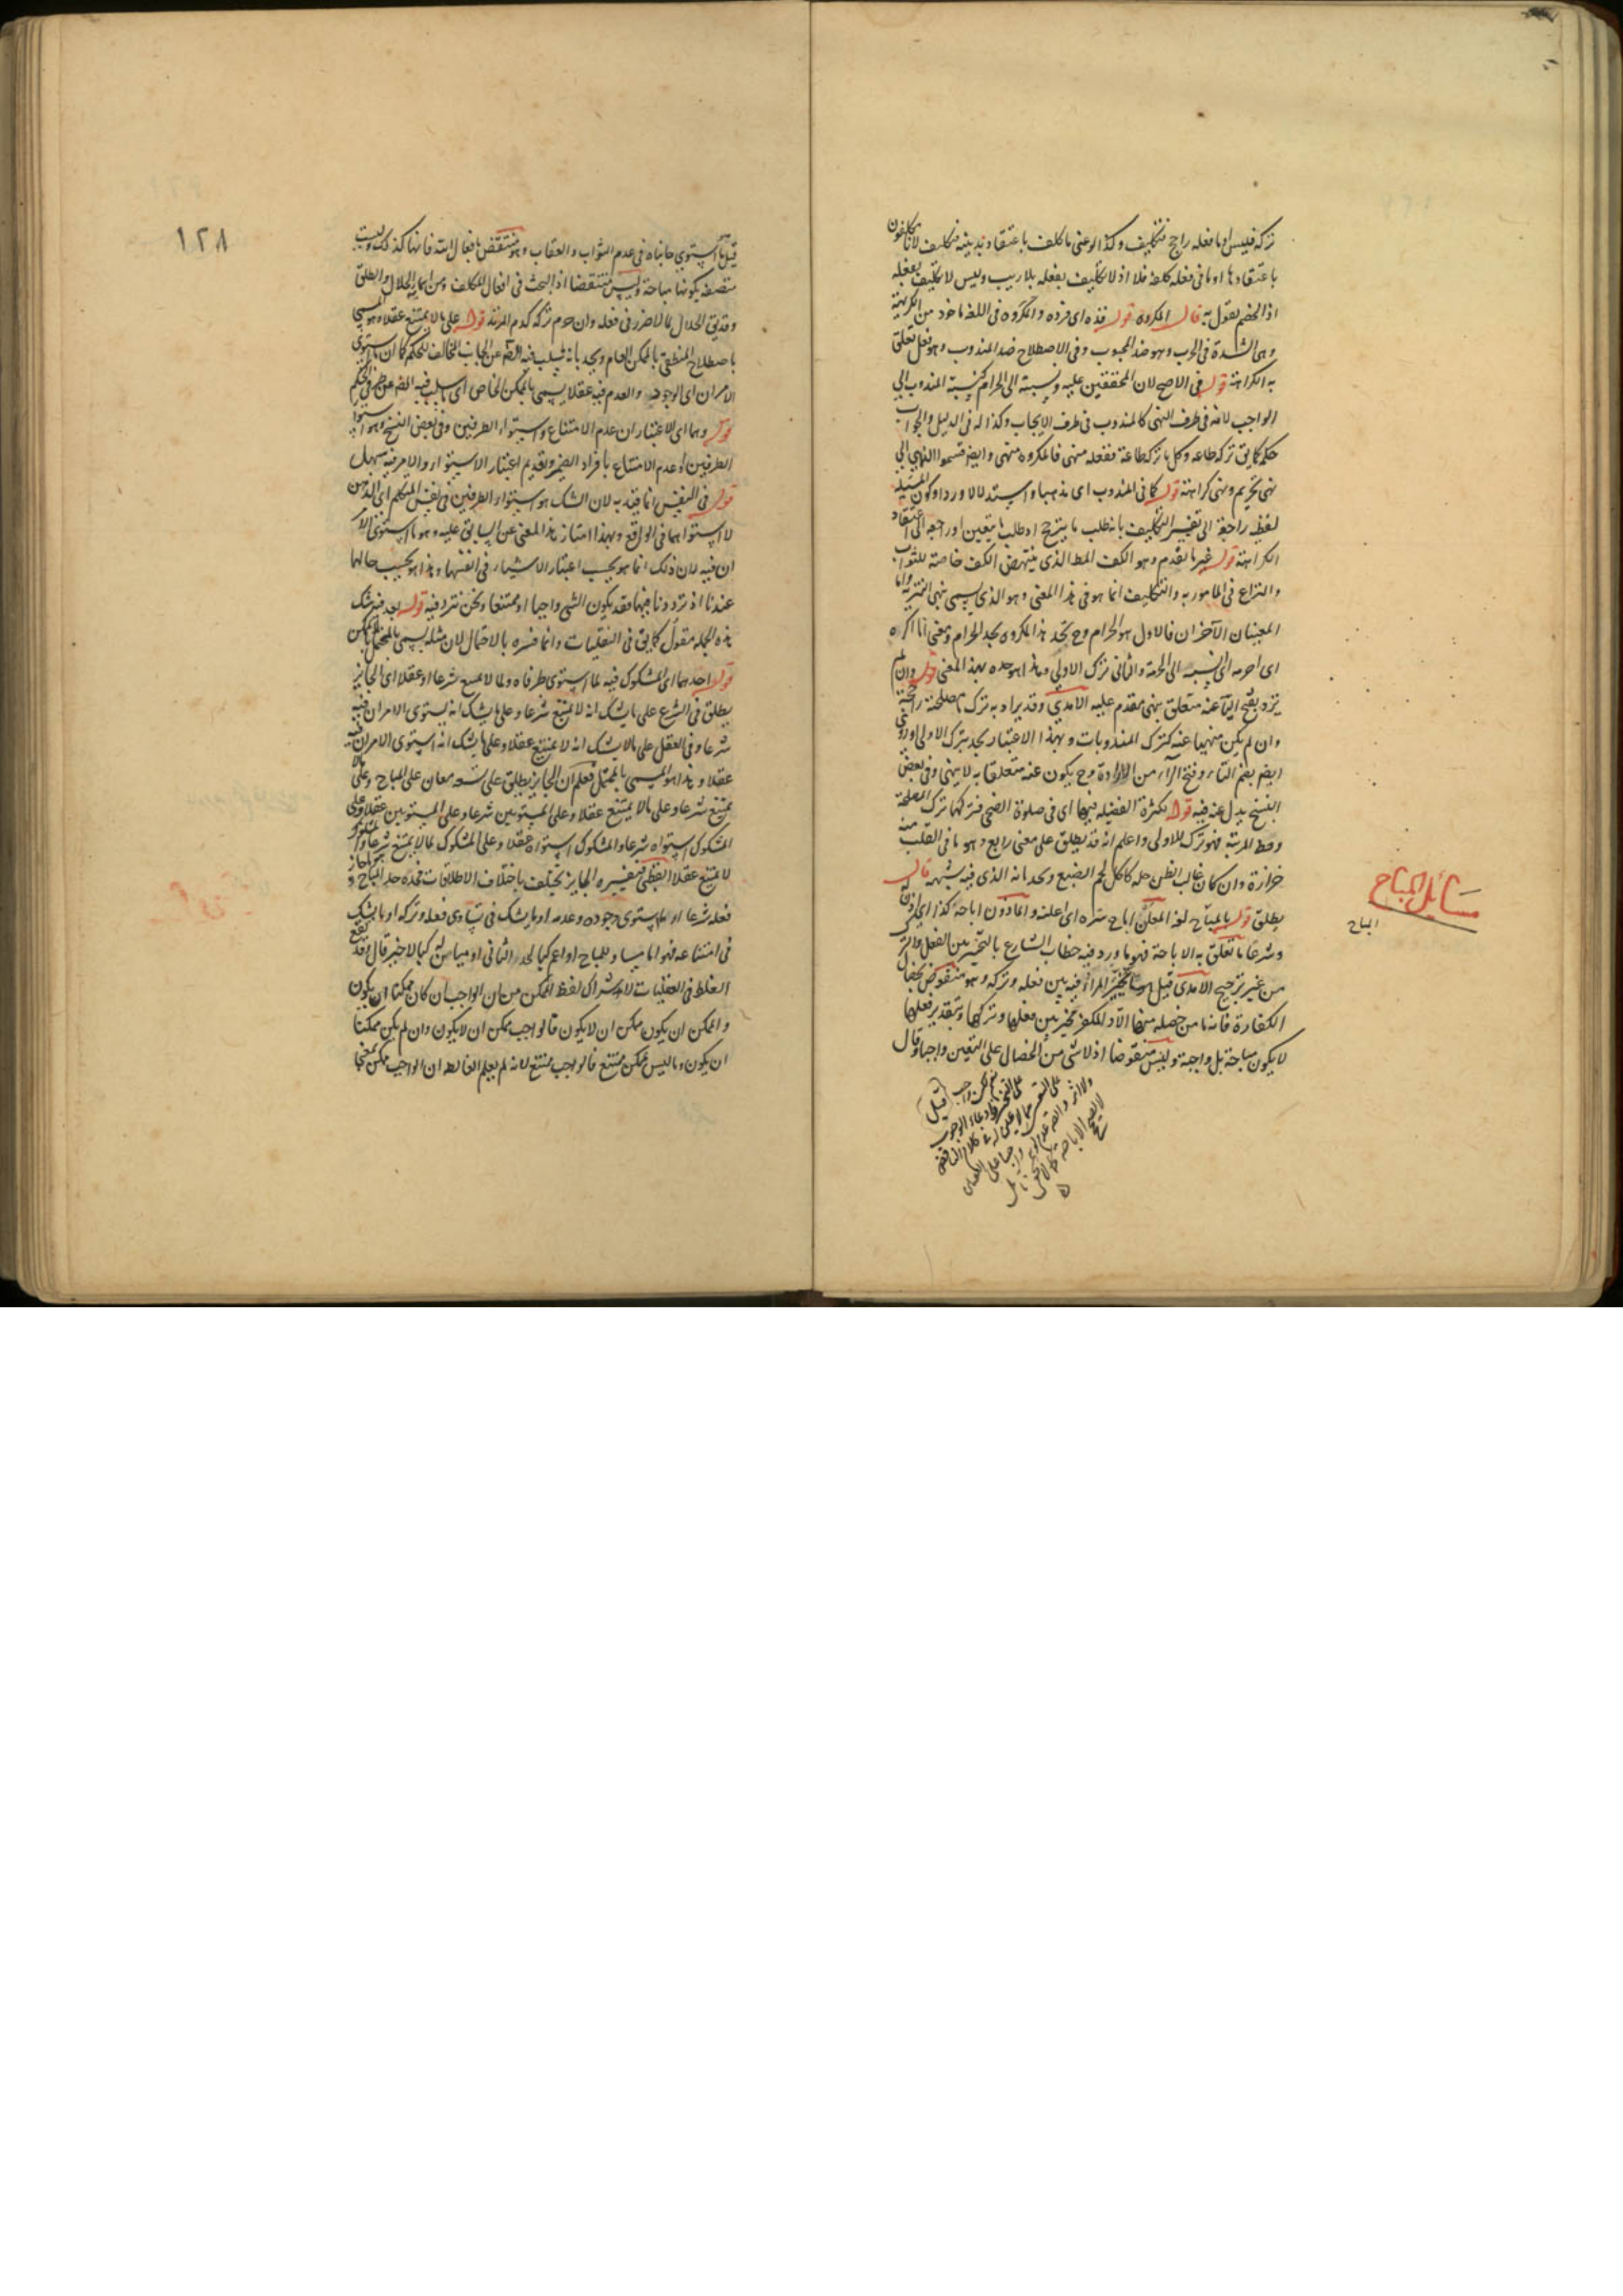 تركه فليس او ما فعله راجح فتكليف وكذا لو عنى ما كلف باعتقاد ندبيته فتكليف لانا مكلفون
باعتقادها او ما في فعله كلفة فلا اذ لا تكليف بفعله بلا ريب وليس لا تكليف بفعله
اذ الخصم يقول به قال المكروه قوله فذه اى فرده والمكروه في اللغة ماخوذ من الكريهة
وهى الشدة في الحرب وهو ضد المحبوب وفي الاصطلاح ضد المندوب وهو فعل تعلق
به الكراهة قوله في الاصح لان المحققين عليه ونسبته الى الحرام كنسبة المندوب الى
الواجب لانه في طرف النهى كالمندوب في طرف الايجاب وكذا له في الدليل والجواب
حكمه كما يق تركه طاعة وكل ما تركه طاعة ففعله منهى فالمكروه منهى وايضا قسموا النهى الى
نهى تحريم ونهى كراهة قوله كما في المندوب اى مذهبا واستدلالا وردا وكون المسئلة
لفظية راجعة الى تفسير التكليف بانه طلب ما يترجح او طلب ما يتعين او راجع الى اعتقاد
الكراهة قوله غير ما تقدم وهو الكف المط الذى ينتهض الكف خاصة للثواب
والنزاع في المامور به والتكليف انما هو في هذا المعنى وهو الذى يسمى نهى التنزيه واما
المعنيان الآخران فالاول هو الحرام وح يحد هذا المكروه بحد الحرام ومعنى انا اكره
اى احرمه الى نسبته الى الحرمة والثانى ترك الاولى وهذا هو حده بهذا المعنى قوله وان لم
يرد بفتح الياء عنه متعلق بنهى مقدم عليه الآمدي وقد يراد به ترك ما مصلحته راجحة
وان لم يكن منهيا عنه كترك المندوبات وبهذا الاعتبار يحد بترك الاولى وروى
ايضا بضم التاء وفتح الراء من الارادة وح يكون عنه متعلقا به لا بنهى وفي بعض
النسخ بدل عنه فيه قوله لكثرة الفضيلة فيها اى في صلوة الضحى فتركها ترك المصلحة
وحط المرتبة فهو ترك للاولى واعلم انه قد يطلق على معنى رابع وهو ما في القلب منه
حزازة وان كان غالب الظن حله كاكل لحم الضبع ويحد بانه الذى فيه شبهة قال
يطلق قوله المباح لغة المعلن اباح سره اى اعلنه والماذون اباحه كذا اى اذن له
وشرعا ما تعلق به الاباحة فهو ما ورد فيه خطاب الشارع بالتخيير بين الفعل والترك
من غير ترجيح الآمدي قيل ما خير المرء فيه بين فعله وتركه وهو منقوض بخصال
الكفارة فانه ما من خصلة منها الا والمكفر مخير بين فعلها وتركها وبتقدير فعلها
لا يكون مباحة بل واجبة وليس منقوضا اذ لا شئ من الخصال على التعيين واجبا وقال
مسائل المباح
المباح
١٢٨
قيل ما استوى جانباه في عدم الثواب والعقاب وهو منتقض بافعال الله فانها كذلك وليست
متصفة بكونها مباحة وليس منتقضا اذ البحث في افعال المكلف ومن اسمائه الحلال والطلق
وقد يق الحلال لما لا ضرر في فعله وان حرم تركه كدم المرتد قوله على ما لا يمتنع عقلا وهو المسمى
باصطلاح المنطقى بالممكن العام ويحد بانه سلب فيه الضم عن الجانب المخالف للحكم كما ان ما استوى
الامران اى الوجود والعدم فيه عقلا يسمى بالممكن الخاص اى سلب فيه الضم عن طرفى الحكم
قوله وهما اى الاعتباران عدم الامتناع واستواء الطرفين وفي بعض النسخ وهو استواء
الطرفين او عدم الامتناع بافراد الضمير وتقديم اعتبار الاستواء والامر فيه سهل
قوله في النفس انما قيد به لان الشك هو استواء الطرفين في نفس المتكلم اى الذهن
لا استواهما في الواقع وبهذا امتاز هذا المعنى عن السابق عليه وهو ما استوى الامر
ان فيه لان ذلك انما هو بحسب اعتبار الاشياء في انفسها وهذا هو بحسب حالها
عندنا اذ ترددنا فيها فقد يكون الشئ واجبا او ممتنعا ونحن نتردد فيه قوله بعد فيه شك
هذه الجملة مقول كما يق في النقليات وانما فسره بالاحتمال لان مثله يسمى بالمحتمل بالممكن
قوله احدهما اى المشكوك فيه لما استوى طرفاه ولما لا يمتنع شرعا او عقلا اى الجايز
يطلق في الشرع على ما يشك انه لا يمتنع شرعا وعلى ما يشك انه يستوى الامران فيه
شرعا وفي العقل على ما لا يشك انه لا يمتنع عقلا وعلى ما يشك انه استوى الامران فيه
عقلا وهذا هو المسمى بالمحتمل فعلم ان الجايز يطلق على تسعة معان على المباح وعلى ما لا
يمتنع شرعا وعلى ما لا يمتنع عقلا وعلى المستويين شرعا وعلى المستويين عقلا وعلى
المشكوك استواه شرعا والمشكوك استواه عقلا وعلى المشكوك لما لا يمتنع شرعا والمشكوك
لا يمتنع عقلا البيضاوي فتفسيره الجايز يختلف باختلاف الاطلاقات فحده حد المباح او ما جاز
فعله شرعا او ما يستوى وجوده وعدمه او ما يشك في تساوى فعله وتركه او ما يشك
في امتناعه فهو اما مساو للمباح او اعم كما لحد الثانى او مباين له كما لاخير قال وقد يقع
الغلط في العقليات للاشتراك لفظ الممكن من ان الواجب ان كان ممكنا ان يكون
والممكن ان يكون ممكن ان لا يكون فالواجب ممكن ان لا يكون وان لم يكن ممكنا
ان يكون وما ليس بممكن ممتنع فالواجب ممتنع لانه لم يعلم الغالط ان الواجب ممكن بمعنى